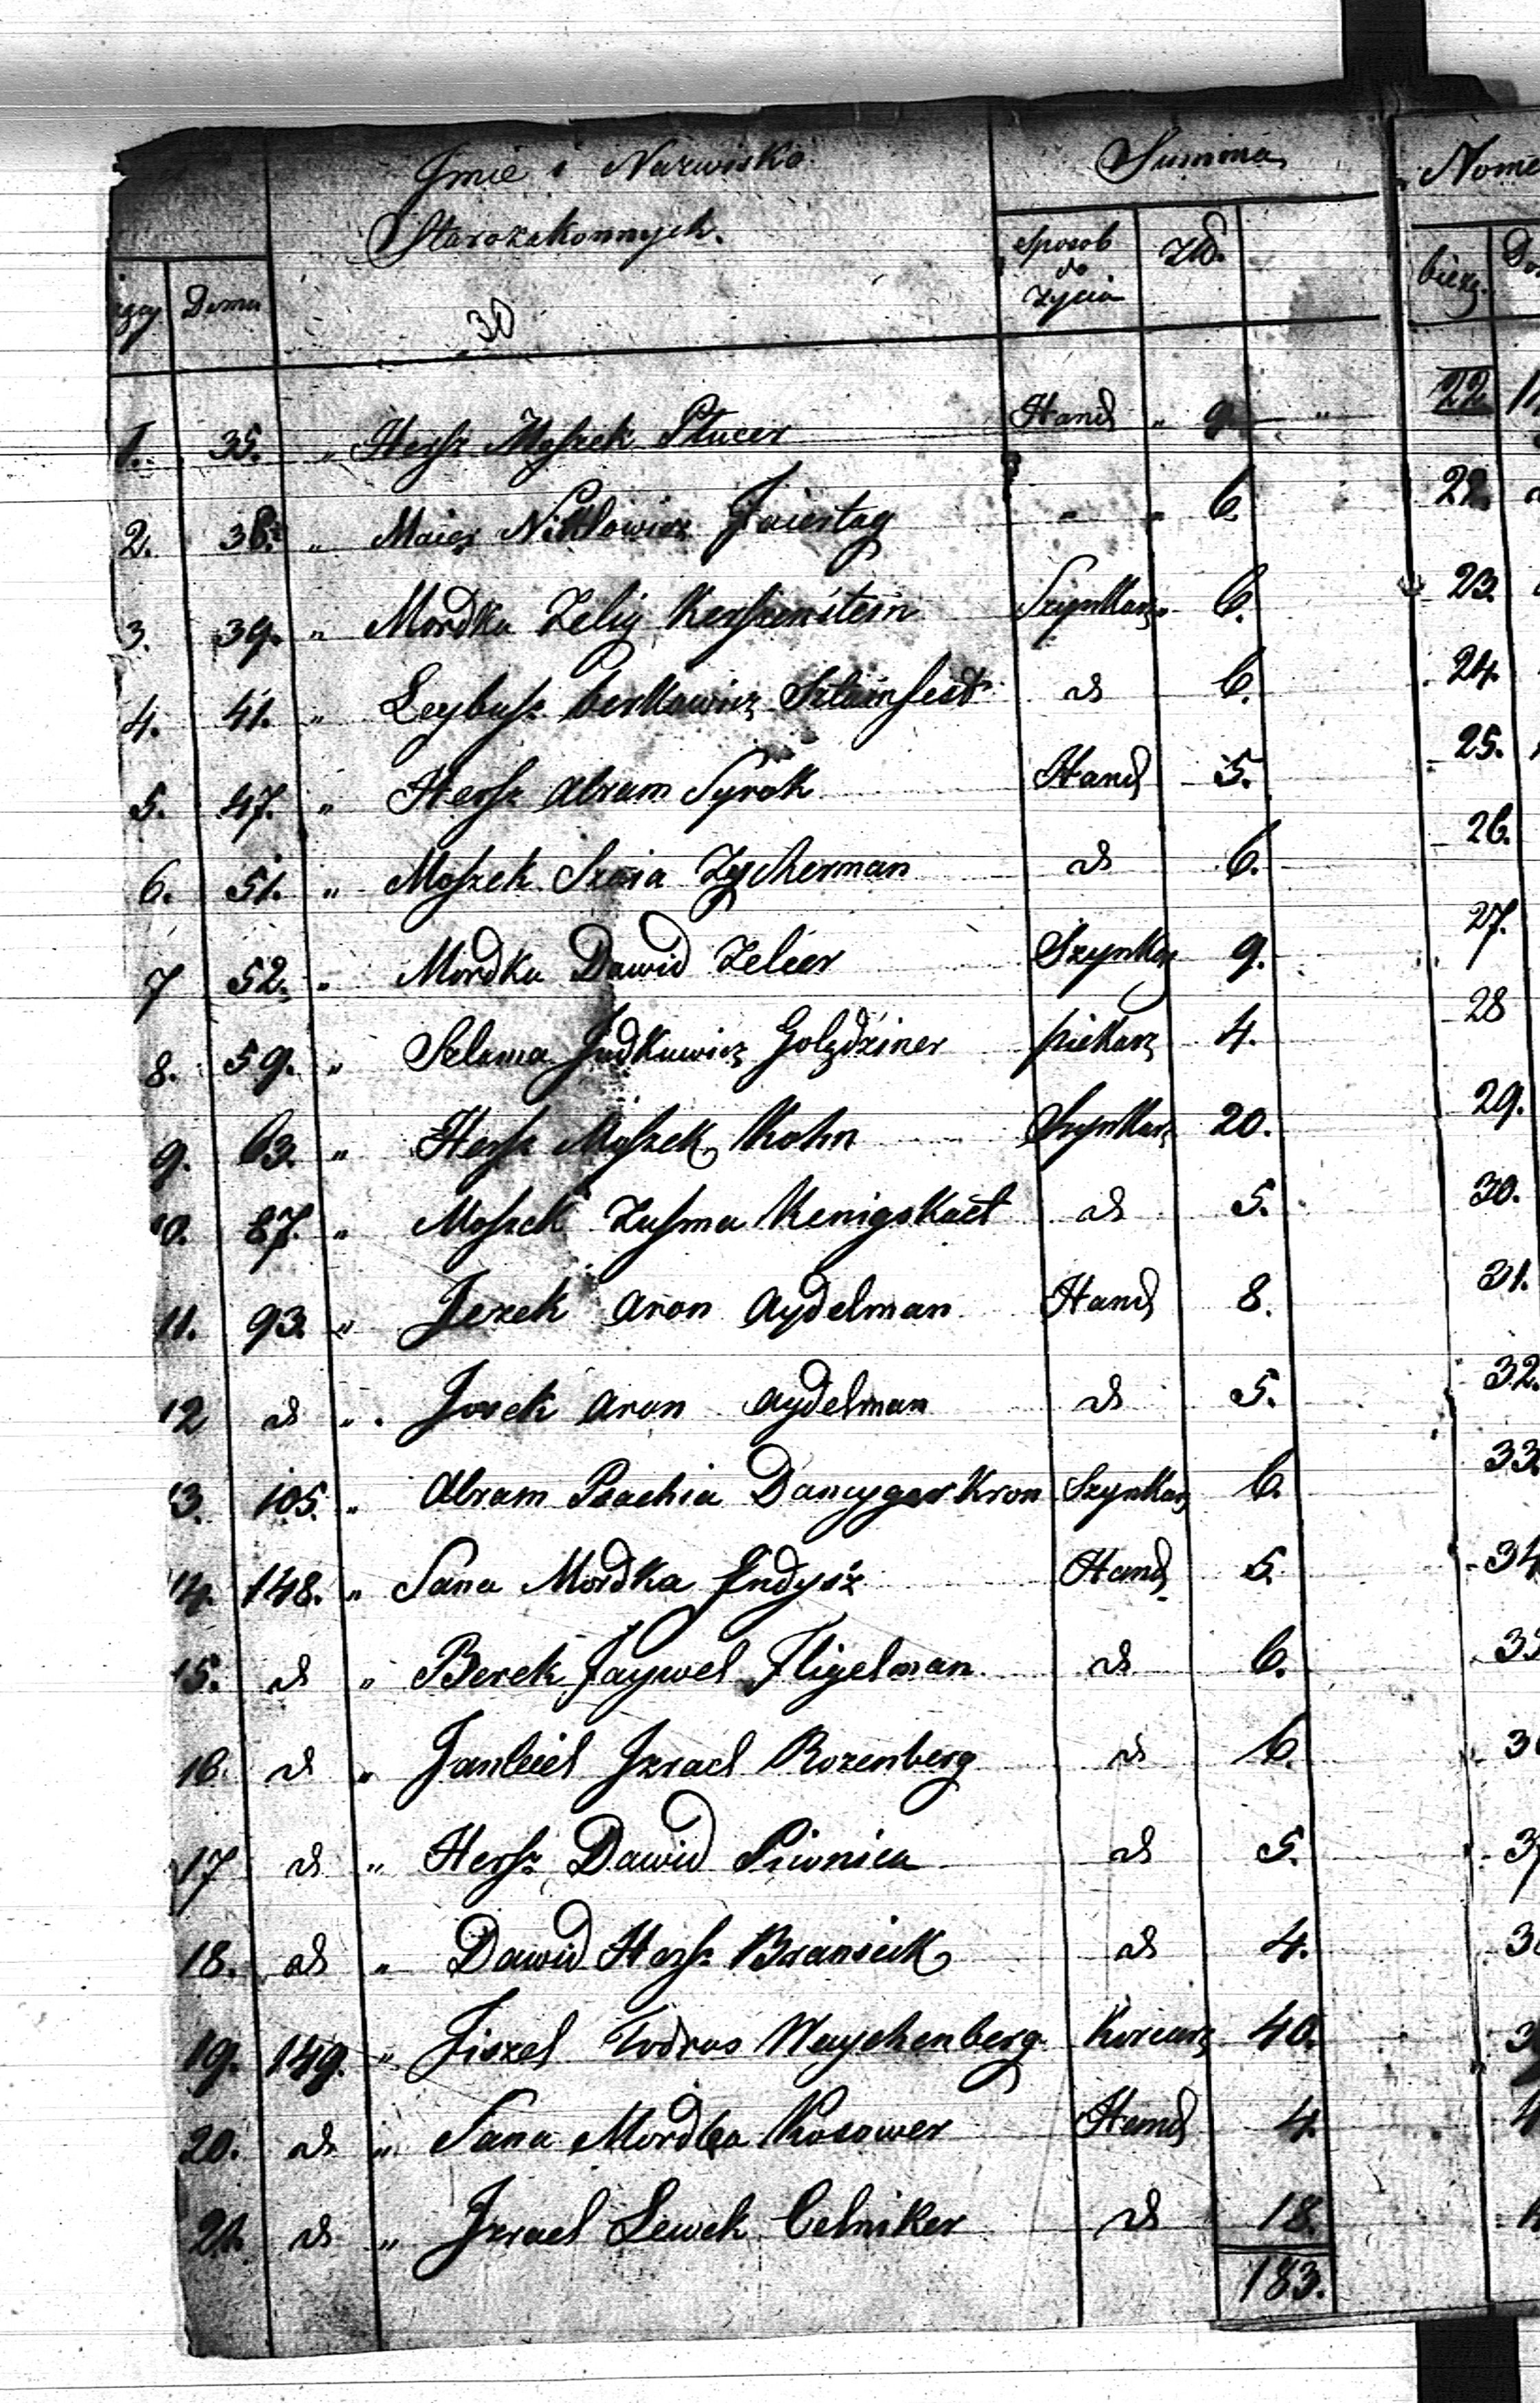 Imie i Nazwisko
Starozakonnych.
Summa
bieżący Domu
sposob do życia
złd.
30
1. 35. " Hersz Moszek Stucer Hand " 9 "
2. 38. " Maier Nikłowicz Faiertag " " 6.
3. 39. " Mordka Zelig Kerszenstein Szynkarz 6.
4. 41. " Leybusz Berkowicz Szlamfest d 6.
5. 47. " Hersz Abram Syrok Hand 5.
6. 51. " Moszek Szaia Zycherman d 6.
7 52. " Mordka Dawid Zelcer Szynkarz 9.
8. 59. " Szlama Judkowicz Golzdziner piekarz 4.
9. 63. " Hersz Moszek Kohn Szynkarz 20.
10. 87. " Moszek Zusma Kenigskaet d 5.
11. 93. " Jczek Aron Aydelman Hand 8.
12 d " Josek Aron Aydelman d 5.
13. 105. " Abram Psachia Dancygerkron Szynkarz 6.
14. 148. " Sana Mordka Jndysz Hand 5.
15. d " Berek Faywel Fligelman d 6.
16. d " Jankiel Jzrael Rozenberg d 6.
17 d " Hersz Dawid Piwnica d 5.
18. d " Dawid Hersz Bransik d 4.
19. 149. " Fiszel Todros Waychenberg Korcarz 40.
20. d " Sana Mordka Kosower Hand 4.
21. d " Jzrael Lewek Celniker d 18.
183.
bieżą.
22
22.
23.
24.
25.
26.
27.
28
29.
30.
31.
32.
33.
34